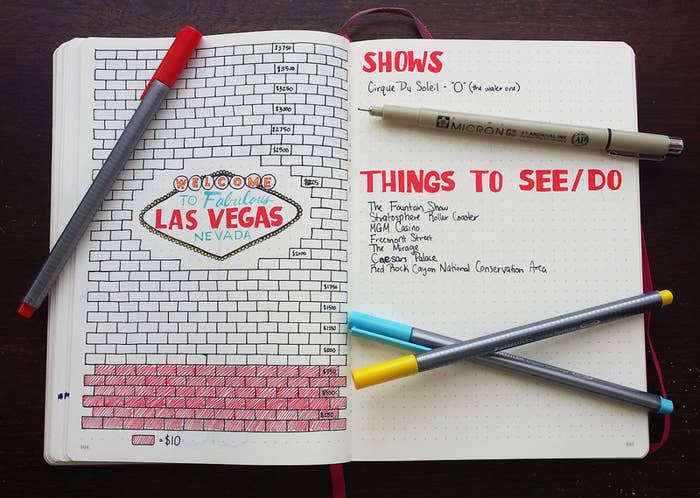 $3750
$3500
$3250
$3000
$2750
$2500
WELCOME
TO Fabulous
LAS VEGAS
NEVADA
$2000
$1750
$1500
$1250
$1000
$750
$500
$250
= $10
SHOWS
Cirque Du Soleil - "O" (the water one)
MICRON
THINGS TO SEE/DO
The Fountain Show
Stratosphere Roller Coaster
MGM Casino
Freemont Street
The Mirage
Caesars Palace
Red Rock Cayon National Conservation Area